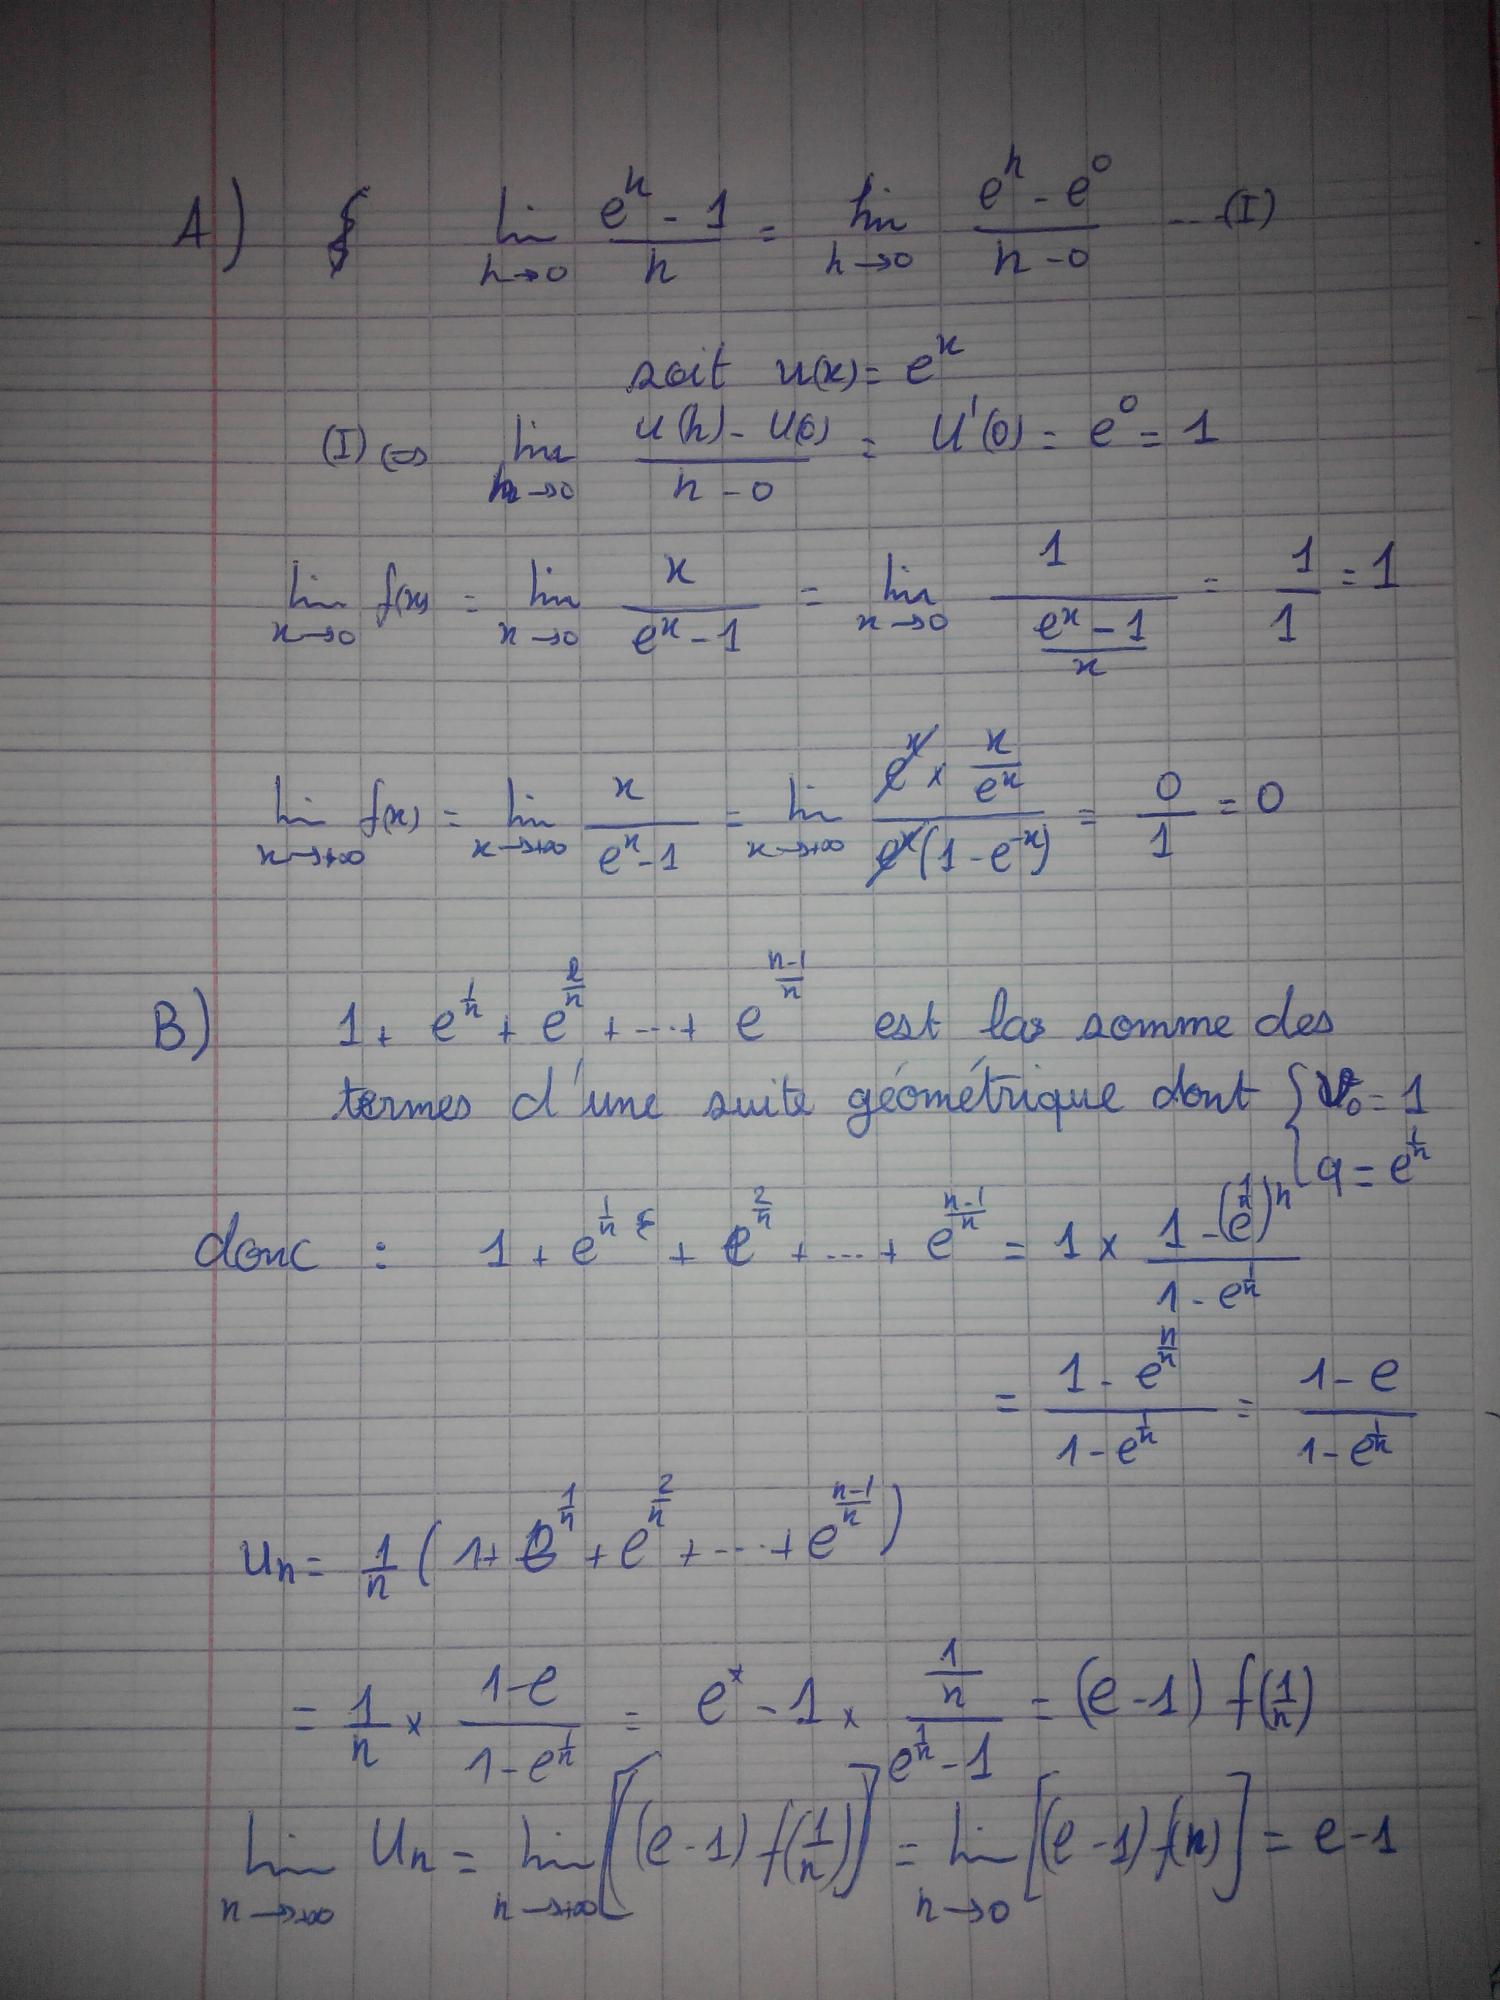 A) lim_{h→0} (e^h - 1)/h = lim_{h→0} (e^h - e^0)/(h - 0) --- (I)
soit u(x) = e^x
(I) ⇔ lim_{h→0} (u(h) - u(0))/(h - 0) = u'(0) = e^0 = 1
lim_{x→0} f(x) = lim_{x→0} x/(e^x - 1) = lim_{x→0} 1/((e^x - 1)/x) = 1/1 = 1
lim_{x→+∞} f(x) = lim_{x→+∞} x/(e^x - 1) = lim_{x→+∞} (e^x × x/e^x)/(e^x(1 - e^{-x})) = 0/1 = 0
B) 1 + e^{1/n} + e^{2/n} + ---+ e^{(n-1)/n} est la somme des
termes d'une suite géométrique dont { v_0 = 1
q = e^{1/n}
donc : 1 + e^{1/n} + e^{2/n} + ---+ e^{(n-1)/n} = 1 × (1 - (e^{1/n})^n)/(1 - e^{1/n})
= (1 - e^{n/n})/(1 - e^{1/n}) = (1 - e)/(1 - e^{1/n})
u_n = 1/n (1 + e^{1/n} + e^{2/n} + ---+ e^{(n-1)/n})
= 1/n × (1 - e)/(1 - e^{1/n}) = e - 1 × (1/n)/(e^{1/n} - 1) = (e - 1) f(1/n)
lim_{n→+∞} u_n = lim_{n→+∞} [(e - 1) f(1/n)] = lim_{n→0} [(e - 1) f(n)] = e - 1